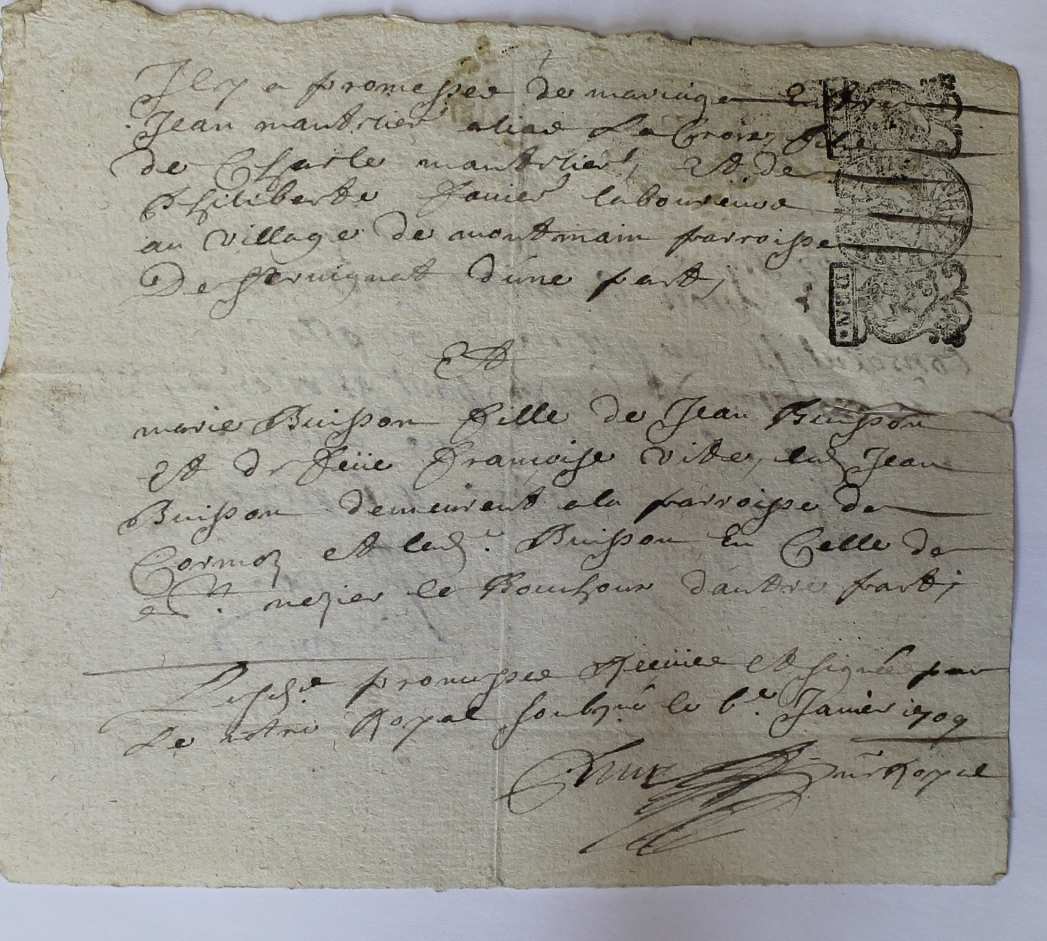 Il y a promesses de mariage Entre
Jean mantelier alias La Croix, filz
de Charle mantelier, Et de
Philiberte Janier laboureurs
au village de montmain parroisse
De servignat d'une part,
Et
marie Buisson fille de Jean Buisson
et de feüe Françoise vitte, led. Jean
Buisson demeurent a la parroisse de
Cormoz et lad.e Buisson En Celle de
St. nezier le Bouchoux d'autre part,
Lesd. promesses Reçües Et signée par
Le notre Royal soubz.né le 6e Janier 1709
nre Royal